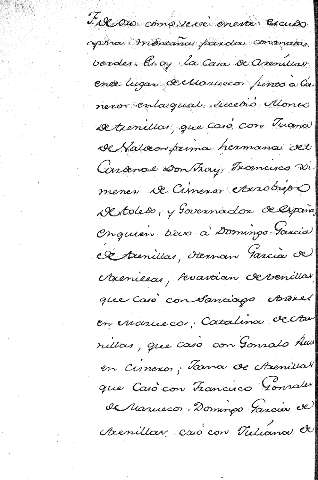 F. de oro como se ve en este Escudo
y una montañas pardas con matas
verdes. Es oy la Casa de Arenillas
en el lugar de Marruecos junto à Cis
neros en la qual sucedió Alonso
de Arenillas, que casó con Juana
de Valderrama hermana del
Cardenal Don Fray, Francisco Xi
menez de Cisneros Arzobispo
de Toledo, y Governador de España
en quien tuvo à Domingo Garcia
de Arenillas, Hernan Garcia de
Arenillas, Sevastian de Arenillas
que casó con Santiago
en Marruecos; Catalina de Are
nillas, que casó con Gonzalo Ruiz
en Cisneros; Juana de Arenillas
que Casó con Francisco Gonzales
de Marruecos. Domingo Garcia de
Arenillas, casó con Juliana de